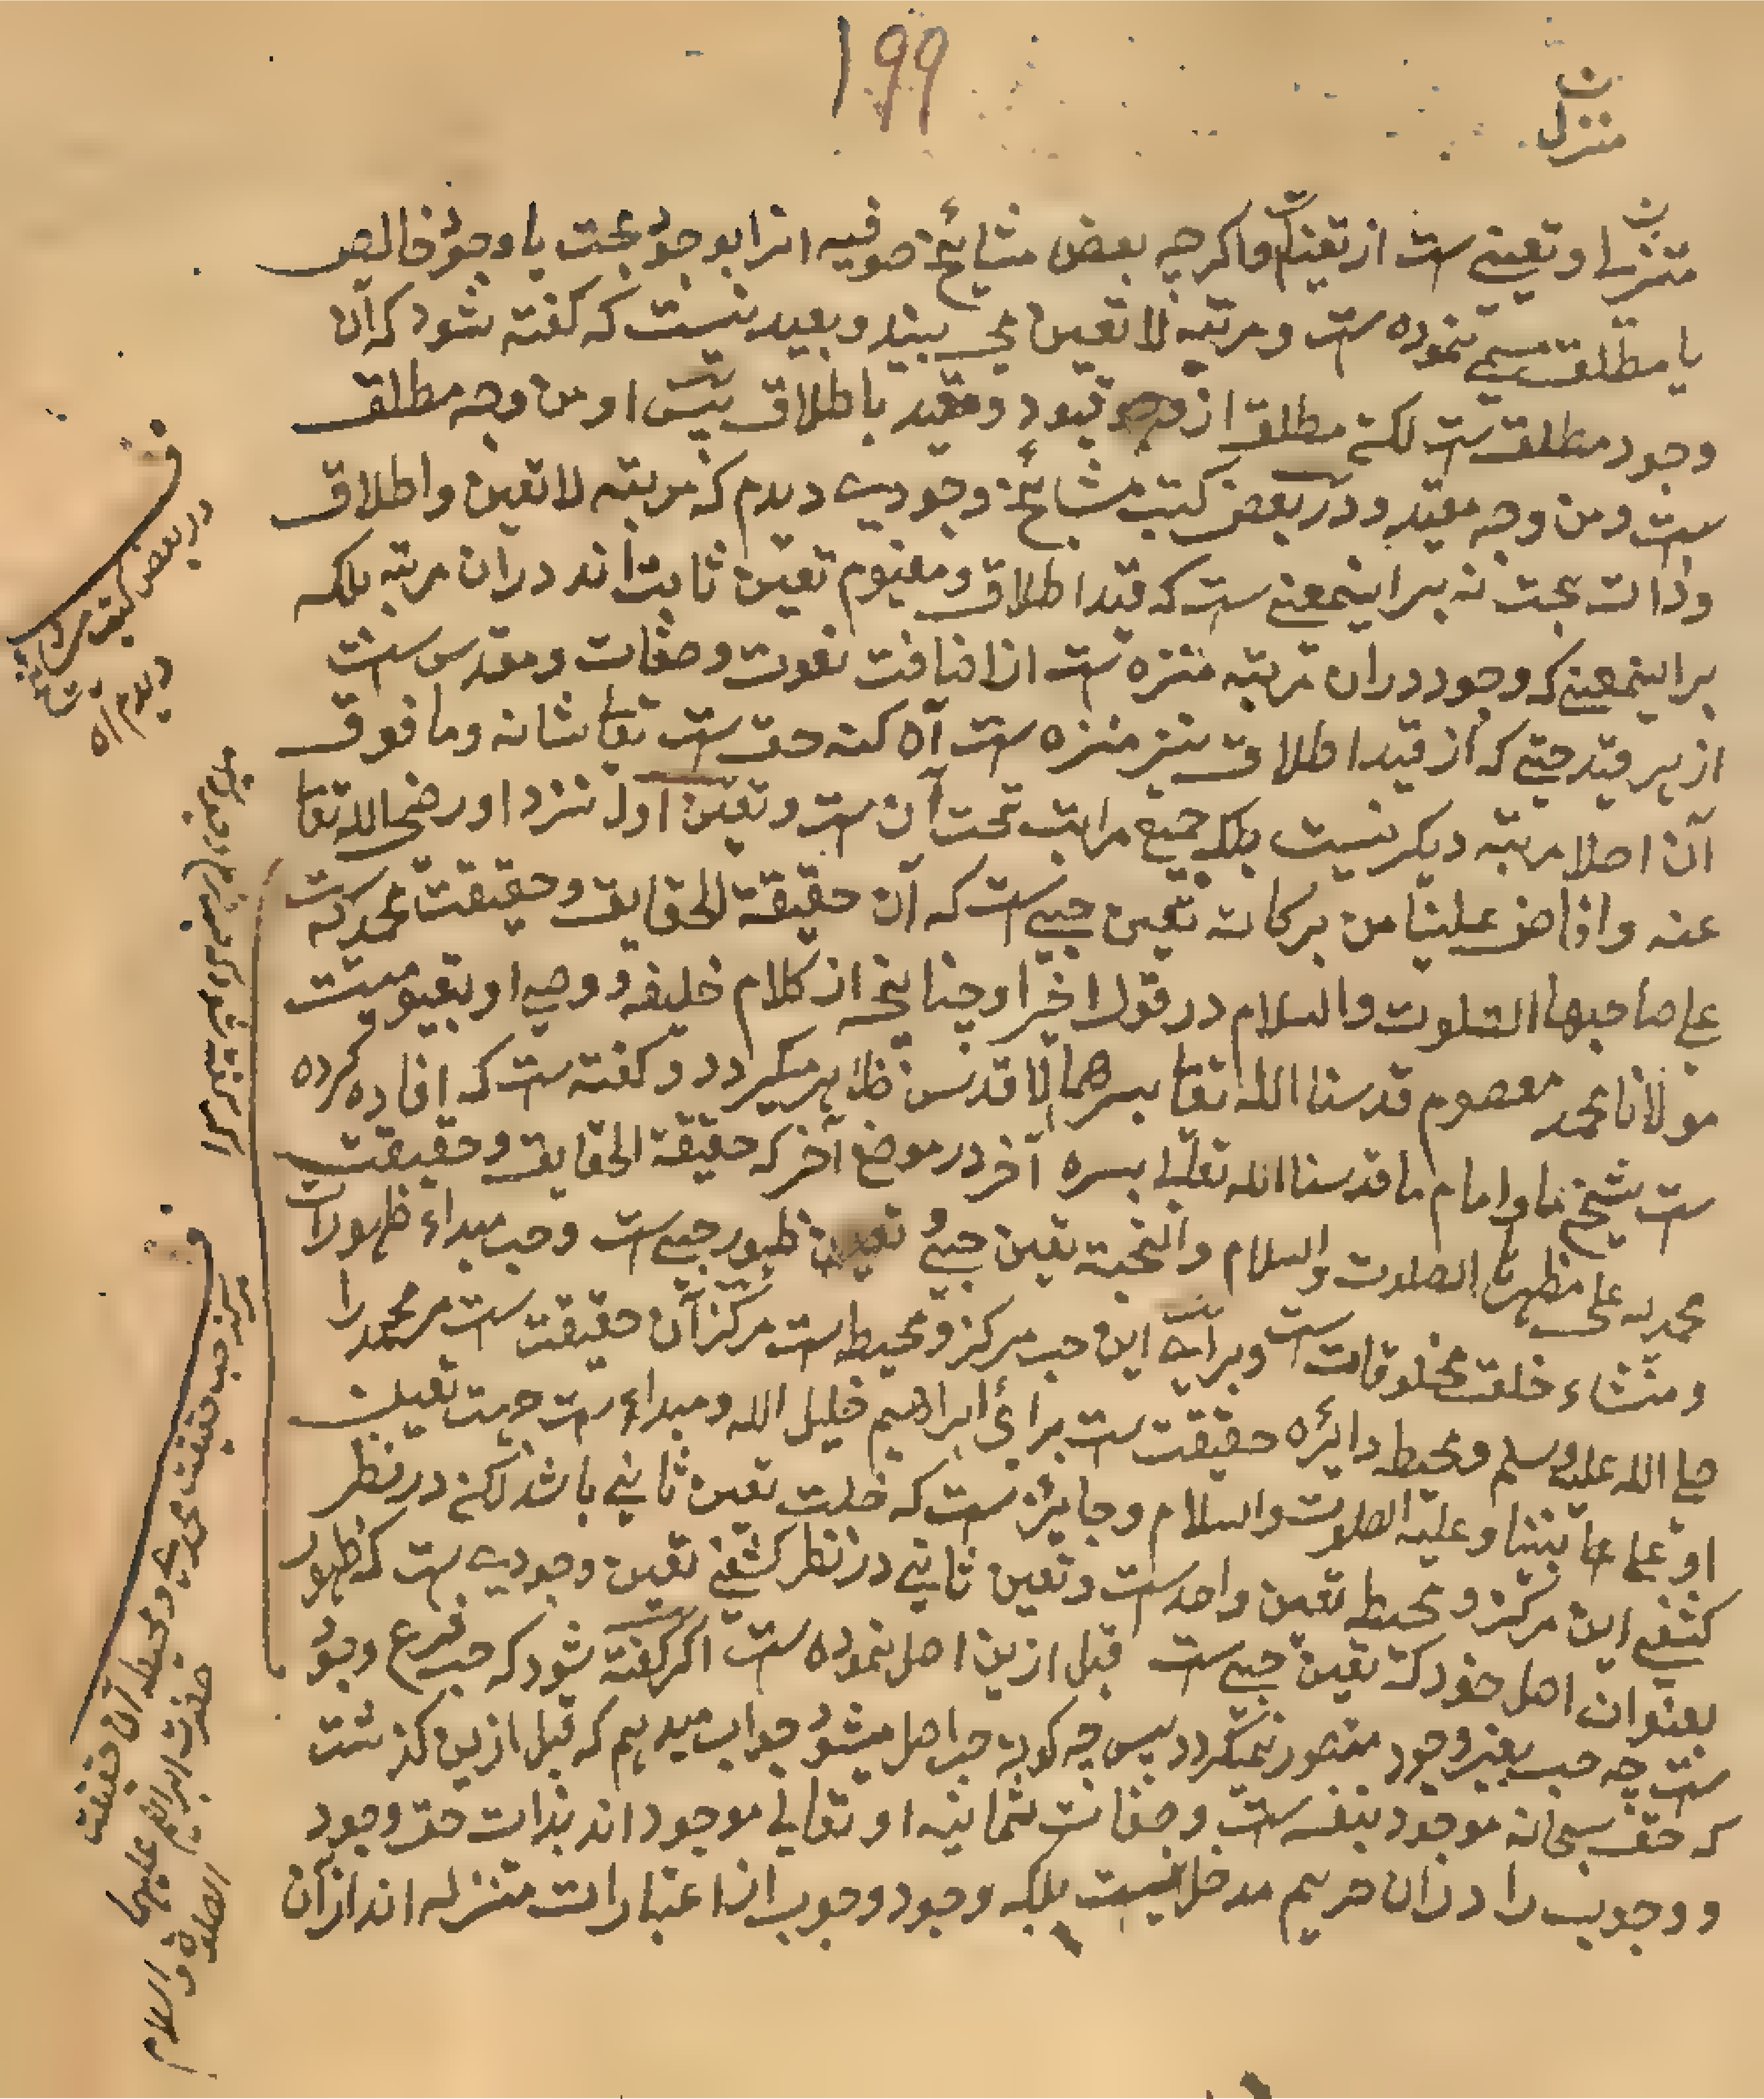 ۱۹۹
تنزل
تنزلے او تعینے ست از تعینات و اکرچه بعض مشایٔخ صوفیه انرا بوجود بحت یا وجود خالص
یا مطلق مسمے نموده ست و مرتبه لا تعین می بیند و بعید نیست که کفته شود که آن
وجود مطلق ست لکن مطلق از قیود و مقید باطلاق پس او من وجه مطلق
ست و من وجه مقید و در بعض کتب مشایٔخ وجودیے دیدم که مرتبه لا تعین و اطلاق
و ذات بحت نه براینمعنے ست که قید اطلاق و مفهوم تعین ثابت اند در ان مرتبه بلکه
براینمعنے که وجود دران مرتبه منزه ست از اضافت نعوت و صفات و مقدس ست
از هر قید حتے که از قید اطلاق نیز منزه ست آن کنه حق ست تعا شانه و ما فوق
آن اصلا مرتبه دیکر نیست بلکه جمیع مراتب تحت آن ست و تعین اول نزد او رضی الله تعا
عنه و افاض علینا من برکاته تعین حبے ست که آن حقیقة الحقایق و حقیقت محمدیه ست
علے صاحبها الصلوت والسلام در قول اخر او چنانچه از کلام خلیفه و وصی او بقیومیت
مولانا محمد معصوم قدسنا الله تعا بسرهما الاقدس ظاهر میکردد و کفته ست که افاده کرده
ست شیخ ما و امام ما قدسنا الله تعالے بسره آخر در موضع آخر که حقیقة الحقایق و حقیقت
محمدیه علی مظهرها الصلوت والسلام والتحیة تعین حبے و تعین ظهور حبے ست و حب مبداء ظهورات
و منشاء خلقت مخلوقات ست و براے این حب مرکز و محیط ست مرکز آن حقیقت ست مر محمد را
صلے الله علیه وسلم و محیط دایٔره حقیقت ست برایٔ ابراهیم خلیل الله و مبداء ست جهت تعین
او علے نبینا و علیه الصلوت والسلام و جایٔز ست که خلت تعین ثانے باشد لکن در نظر
کشفے این مرکز و محیط تعین واحد ست و تعین ثانے در نظر کشفے تعین وجودیے ست که ظهور
بعنوان اصل خود که تعین حبے ست قبل ازین اصل نموده ست اکر کفته شود که حب فرع وجود
ست چه حب بغیر وجود متصور نمیکردد پس چه کونه حب اصل میشود جواب میدهم که قبل ازین کذشت
که حق سبحانه موجود بنفسه ست و صفات ثمانیه او تعالے موجود اند بذات حق وجود
و وجوب را دران حریم مدخل نیست بلکه وجود و وجوب از اعتبارات متنزله اند از آن
در بعض کتب مشایٔخ
دیدم آه
مرکز حب حقیقت محمدیے و محیط آن حقیقت
حضرت ابراهیم علیهما
الصلوة والسلام